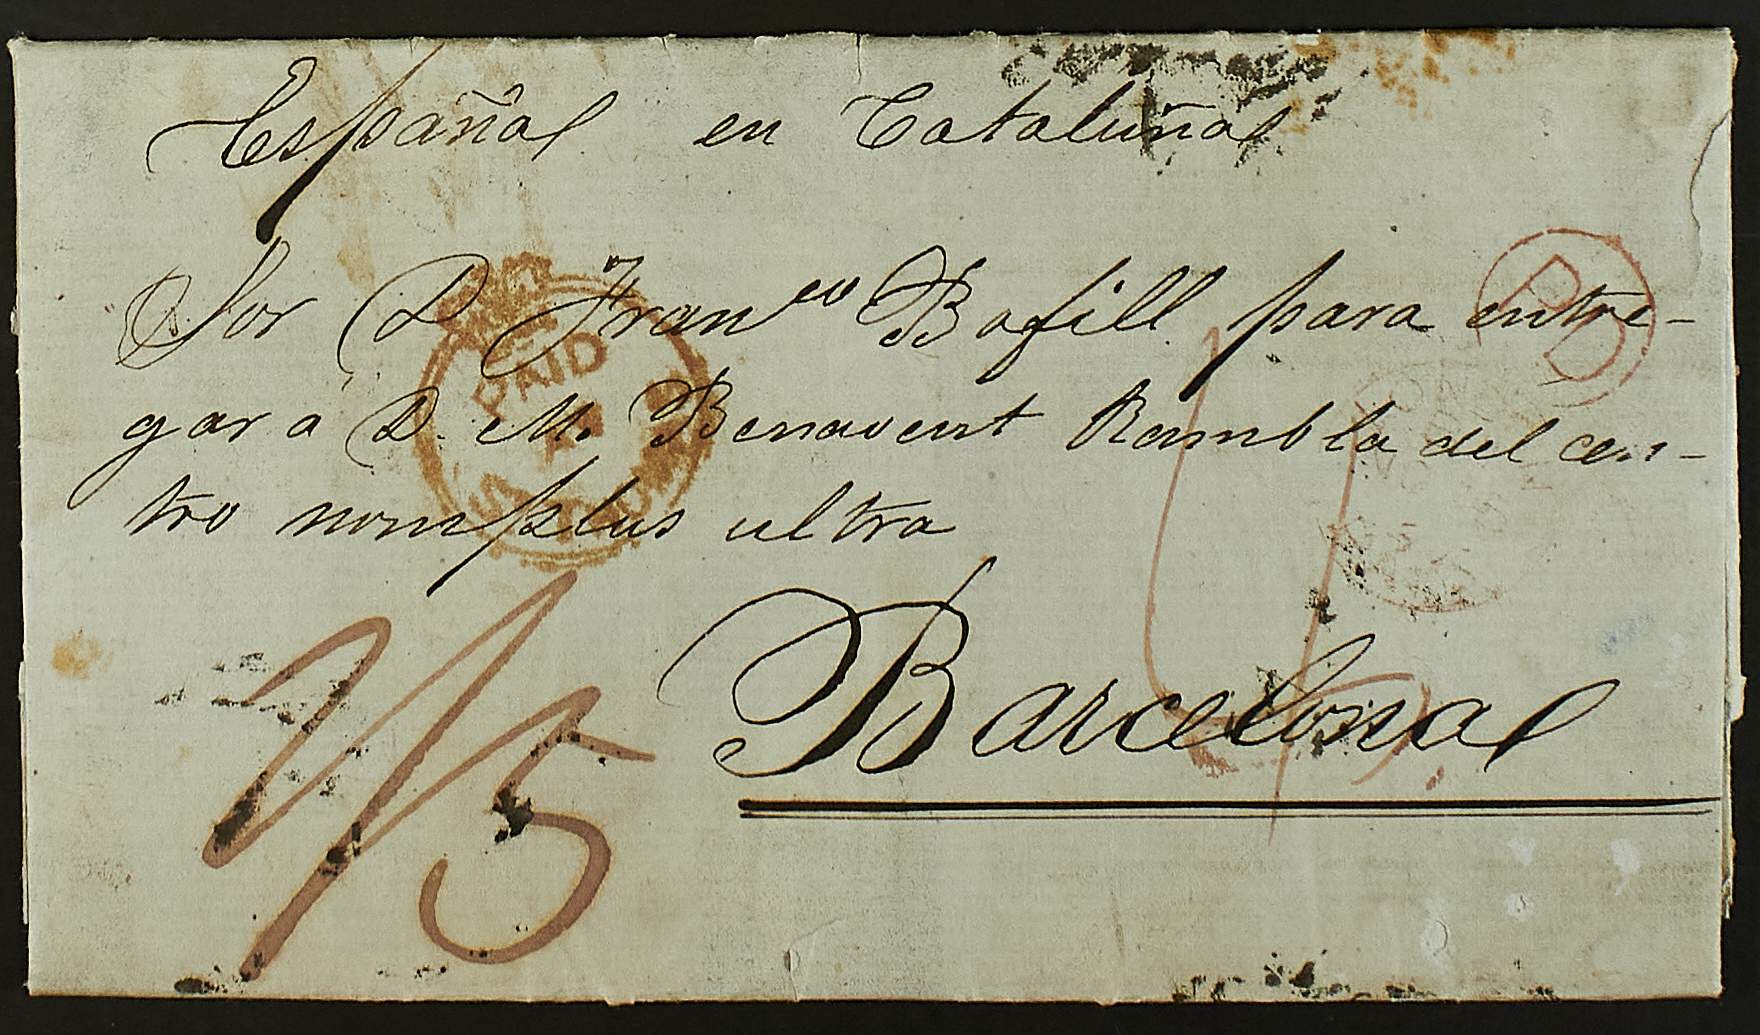 España en Cataluña
Sor D Franco Bofill para entre-
gar a D. M. Benavent Rambla del cen-
tro nomplus ultra
Barcelona
PAID
PD
2/5